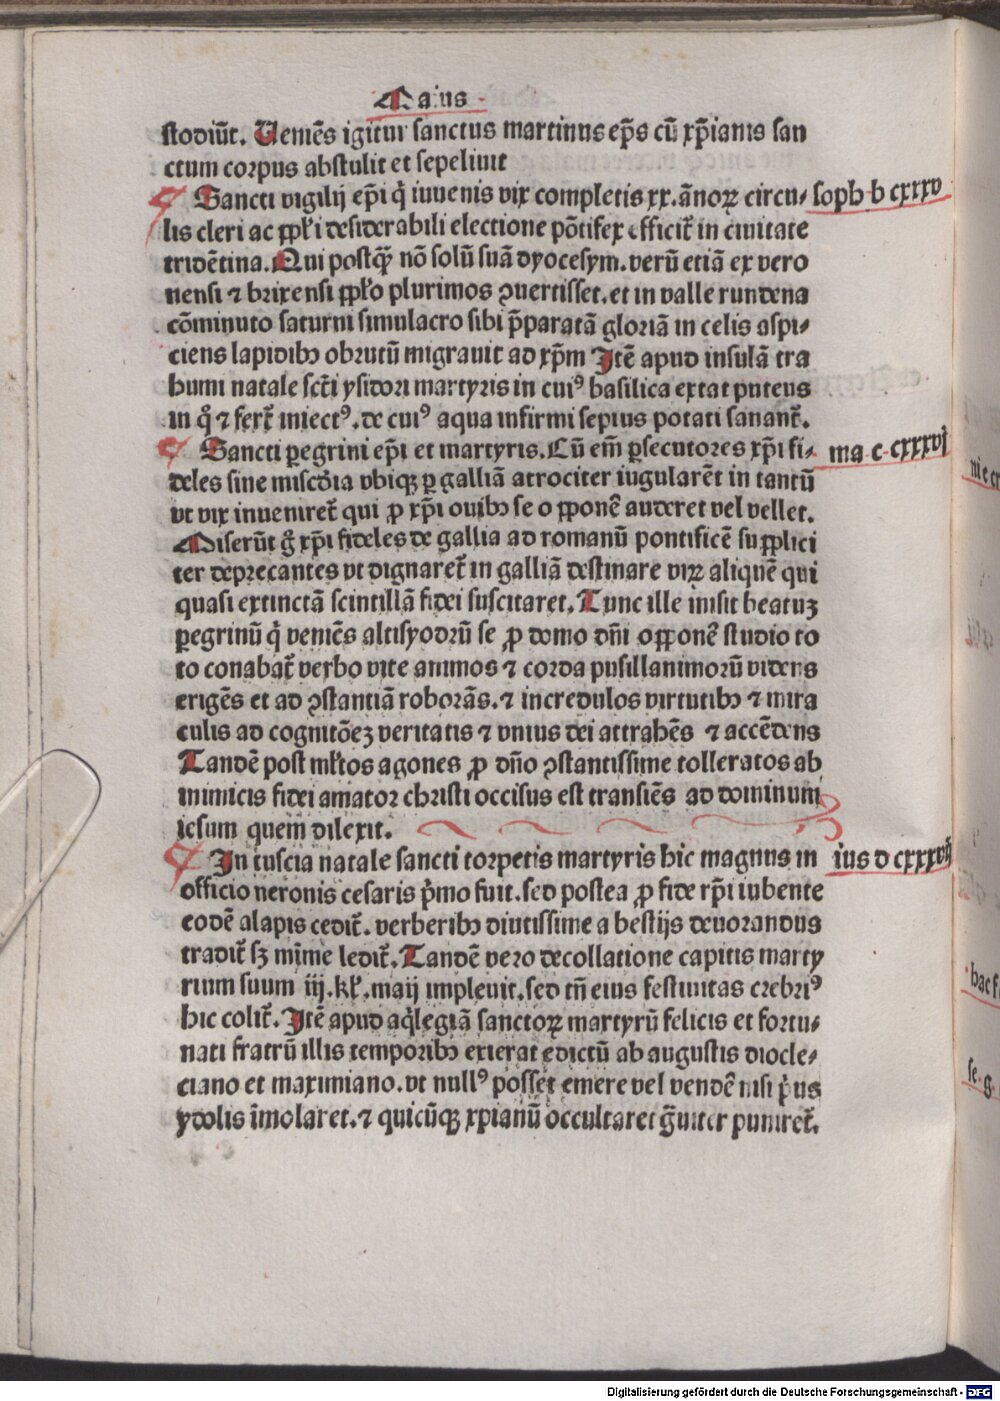 Maius
stodiūt. Ueniēs igitur sanctus martinus ep̄s cū xp̄ianis san
ctum corpus abstulit et sepeliuit
Sancti vigilij ep̄i q̄ iuuenis vix completis xx. ānoꝝ circu⸗ soph b cxxxv
lis cleri ac ꝓpl̄i desiderabili electione pōtifex efficit̄ in ciuitate
tridētina. Qui postꝙ̄ nō solū suā dyocesym. verū etiā ex vero
nensi ⁊ brixensi ꝓpl̄o plurimos ꝯuertisset. et in valle rundena
cōminuto saturni simulacro sibi p̄paratā gloriā in celis aspi⸗
ciens lapidibꝫ obrutū migrauit ad xp̄m Itē apud insulā tra
humi natale scti ysidori martyris in cuiꝰ basilica extat puteus
in q̊ ⁊ fert̄ iniectꝰ. de cuiꝰ aqua infirmi sepius potati sanant̄.
Sancti ꝑegrini ep̄i et martyris. Cū em̄ ꝑsecutores xp̄i fi⸗ ma c cxxxvj
deles sine miscd̄ia vbiqꝫ ꝑ galliā atrociter iugularēt in tantū
vt vix inueniret̄ qui ꝓ xp̄i ouibꝫ se o ꝓponē auderet vel vellet.
Miserūt g̊ xp̄i fideles de gallia ad romanū pontificē su ꝓplici
ter deprecantes vt dignaret̄ in galliā destinare viꝝ aliquē qui
quasi extinctā scintillā fidei suscitaret. Tunc ille misit beatuꝫ
ꝑegrinū q̄ veniēs altisyodrū se ꝓ domo dn̄i oꝓponē studio to
to conabat̄ verbo vite animos ⁊ corda pusillanimorū videns
erigēs et ad ꝯstantiā roborās. ⁊ incredulos virtutibꝫ ⁊ mira
culis ad cognitōeꝫ veritatis ⁊ vnius dei attrahēs ⁊ accēdens
Tandē post ml̄tos agones ꝓ dn̄o ꝯstantissime tolleratos ab
inimicis fidei amator christi occisus est transiēs ad dominum
iesum quem dilexit.
In tuscia natale sancti torpetis martyris hic magnus in ius d cxxxvij
officio neronis cesaris p̄mo fuit. sed postea ꝓ fide xp̄i iubente
eodē alapis cedit̄. verberibꝫ diutissime a bestijs deuorandus
tradit̄ sꝫ mīme ledit̄. Tandē vero decollatione capitis marty
rium suum iij. kl̄. maij impleuit. sed tn̄ eius festiuitas crebriꝰ
hic colit̄. Itē apud aq̊legiā sanctoꝝ martyrū felicis et fortu⸗
nati fratrū illis temporibꝫ exierat edictū ab augustis diocle⸗
ciano et maximiano. vt nullꝰ posset emere vel vendē nisi p̊us
ydolis īmolaret. ⁊ quicūqꝫ xpianū occultaret g̊uiter puniret̄.
Digitalisierung gefördert durch die Deutsche Forschungsgemeinschaft - DFG